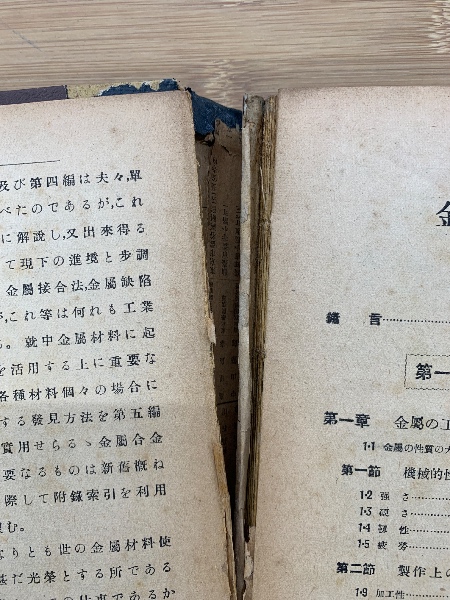 及び第四編は夫々,單
べたのであるが,これ
に解説し,又出來得る
て現下の進境と歩調
金屬接合法,金屬缺陷
が,これ等は何れも工業
る。就中金屬材料に起
を活用する上に重要な
各種材料個々の場合に
する發見方法を第五編
實用せらるゝ金屬合金
要なるものは新舊概ね
際して附錄索引を利用
望む。
なりとも世の金屬材料使
甚だ光榮とする所である
金
緒言
第一
第一章 金屬の工
1·1 金屬の性質の大
第一節 機械的性
1·2 強さ
1·3 硬さ
1·4 靱性
1·5 疲勞
第二節 製作上の
1·9 加工性